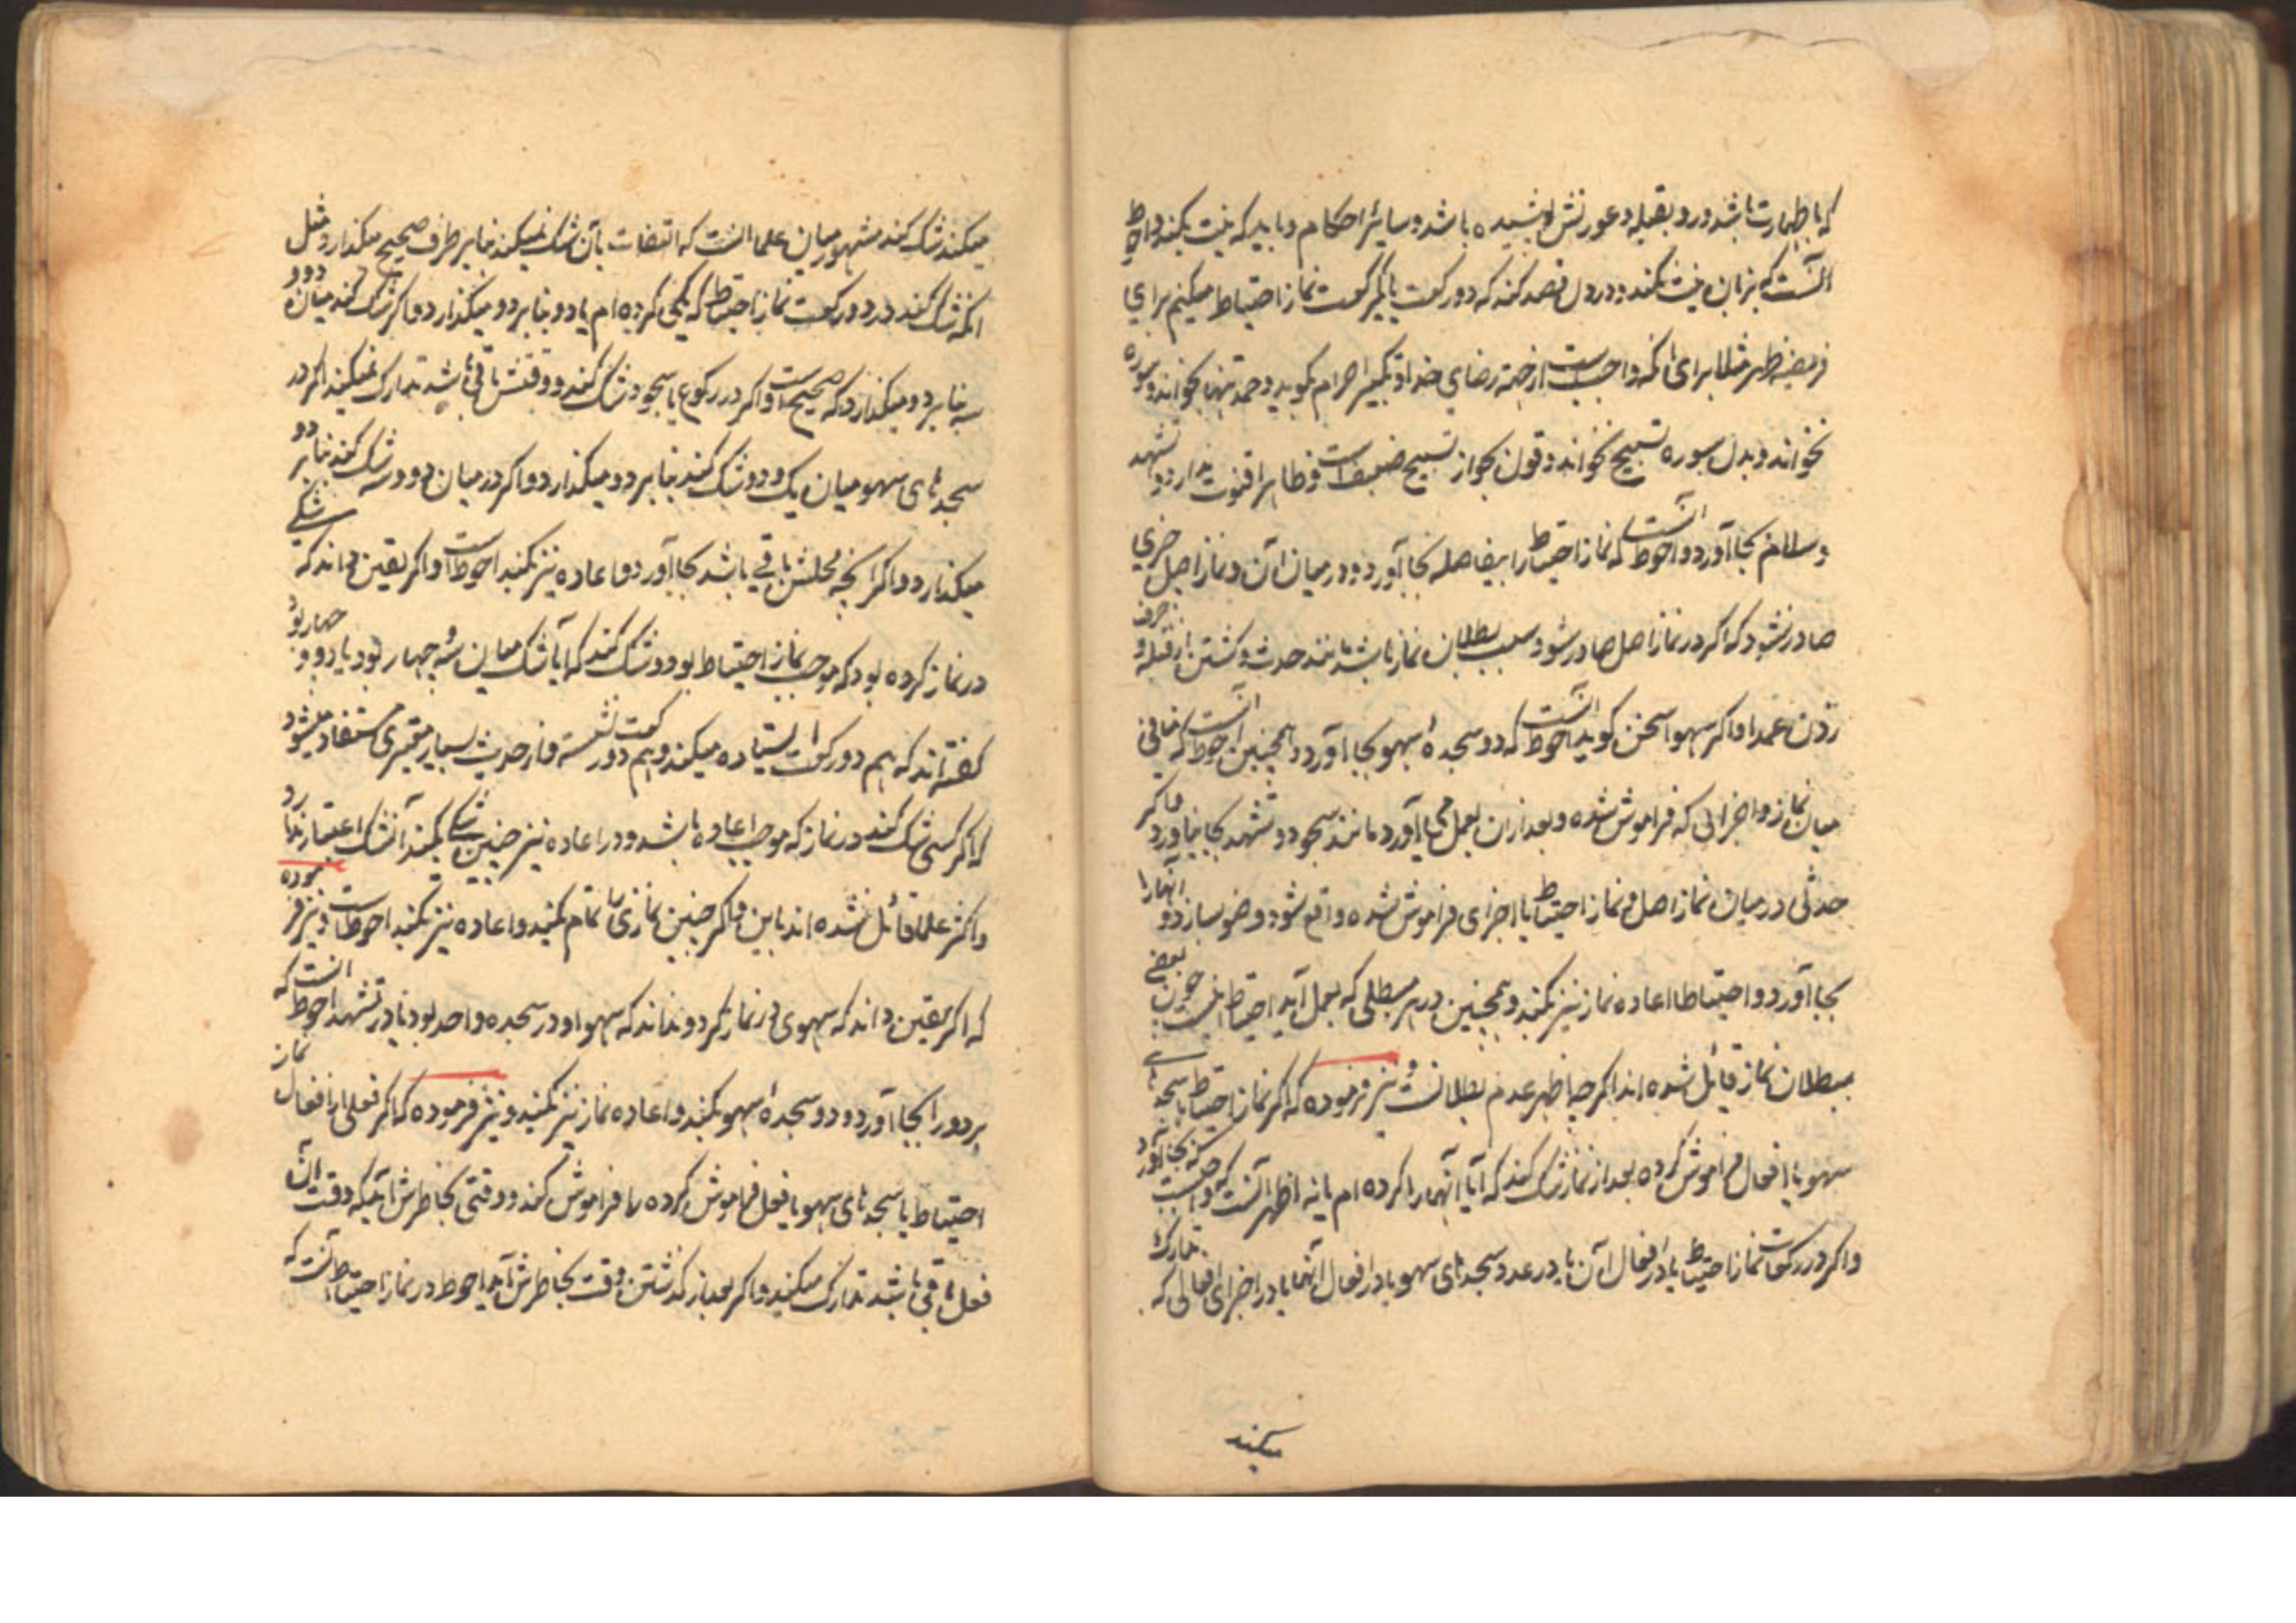 که با طهارت باشد و رو بقبله و عورتش پوشیده باشد و سایر احکام و باید که نیت بکند و احوط
آنست که بزبان نیت نکند و در دل قصد کند که دو رکعت یا یکرکعت نماز احتیاط میکنم برای
فریضه ظهر مثلا برای آنکه واجبست از جهة رضای خدا و تکبیر احرام گوید و حمد تنها بخواند و سوره
نخواند و بدل سوره تسبیح نخواند و قول بجواز تسبیح ضعیفست و ظاهرا قنوت ندارد و تشهد
و سلام بجا آورد و احوط آنست که نماز احتیاط را بیفاصله بجا آورد و در میان آن و نماز اصل چیزی
صادر نشود که اگر در نماز اصل صادر شود سبب بطلان نماز باشد مانند حدث و گشتن از قبله و حرف
زدن عمدا و اگر سهوا سخن گوید احوط آنست که دو سجدهٔ سهو بجا آورد و همچنین احوط آنست که منافی
میان نماز و اجزائی که فراموش شده و بعد از آن بعمل می‌آورد مانند سجود و تشهد بجا نیاورد و اگر
حدثی در میان نماز اصل و نماز احتیاط یا اجزای فراموش شده واقع شود وضو سازد و آنها را
بجا آورد و احتیاطا اعاده نماز نیز بکند و همچنین در هر مبطلی که بعمل آید احتیاط اینست چون بعضی
ببطلان نماز قائل شده اند اگر چه اظهر عدم بطلانست و نیز فرموده که اگر نماز احتیاط یا سجدهای
سهو یا افعال فراموش کرده بعد از نماز شک کند که آیا آنهارا کرده ام یا نه اظهر آنست که واجبست که بجا آورد
و اگر در رکعات نماز احتیاط یا در افعال آن یا در عدد سجدهای سهو یا در افعال آنها یا در اجزای افعالی که تدارک
میکند
میکند شک کند مشهور میان علما آنست که التفات بآن شک نمیکند بنا بر طرف صحیح میگذارد مثل
آنکه شک کند در دو رکعت نماز احتیاط که یکی کرده ام یا دو بنا بر دو میگذارد و اگر شک کند میان دو و
سه بنا بر دو میگذارد که صحیح است و اگر در رکوع یا سجود شک کند و وقتش باقی باشد تدارک نمیکند اگر در
سجدهای سهو میان یک و دو شک کند بنا بر دو میگذارد و اگر در میان دو و سه شک کند بنا بر دو
میگذارد و اگر آنچه محلش باقی باشد بجا آورد و اعاده نیز بکند احوطست و اگر یقین داند که شکی
در نماز کرده بود که موجب نماز احتیاط بود و شک کند که آیا شک میان سه و چهار بود یا دو و چهار بود
گفته اند که هم دو رکعت ایستاده میکند و هم دو رکعت نشسته و از حدیث بسیار معتبری مستفاد میشود
که اگر کسی شک کند در نماز که موجب اعاده باشد و در اعاده نیز چنین شکی بکند آن شک اعتبار ندارد
و اکثر علما قائل نشده اند باین و اگر چنین نمازی را تمام کند و اعاده نیز بکند احوطست و نیز فرموده
که اگر یقین داند که سهوی در نماز کرد و نداند که سهو او در سجده واحد بود یا در تشهد احوط آنست که
هر دو را بجا آورد و دو سجدهٔ سهو بکند و اعاده نماز نیز بکند و نیز فرموده که اگر فعلی از افعال نماز
احتیاط یا سجدهای سهو یا فعل فراموش کرده را فراموش کند و وقتی بخاطرش آید که وقت آن
فعل باقی باشد تدارک میکند و اگر بعد از گذشتن وقت بخاطرش آید احوط در نماز احتیاط آنست که